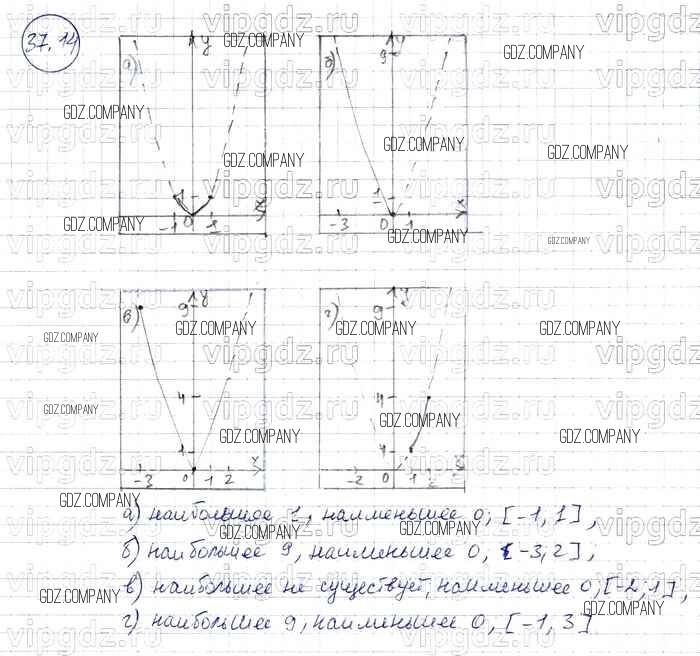 37.14
а) y 1 -1 0 1 x
б) 9 y 1 -3 0 1 x
в) 9 y 4 1 -3 0 1 2 x
г) 9 y 4 -2 0 1 2 x
а) наибольшое 1, наименьшее 0, [-1, 1],
б) наибольшее 9, наименьшее 0, [-3; 2],
в) наибольшее не существует, наименьшее 0, [-2, 1],
г) наибольшее 9, наименьшее 0, [-1, 3]
GDZ.COMPANY
vipgdz.ru